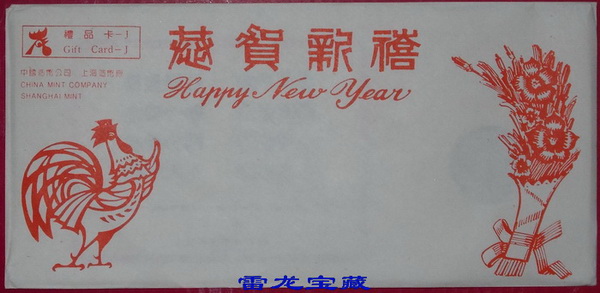 禮品卡-J
Gift Card-J
中國造幣公司 上海造幣廠
CHINA MINT COMPANY
SHANGHAI MINT
恭賀新禧
Happy New Year
雷龙宝藏